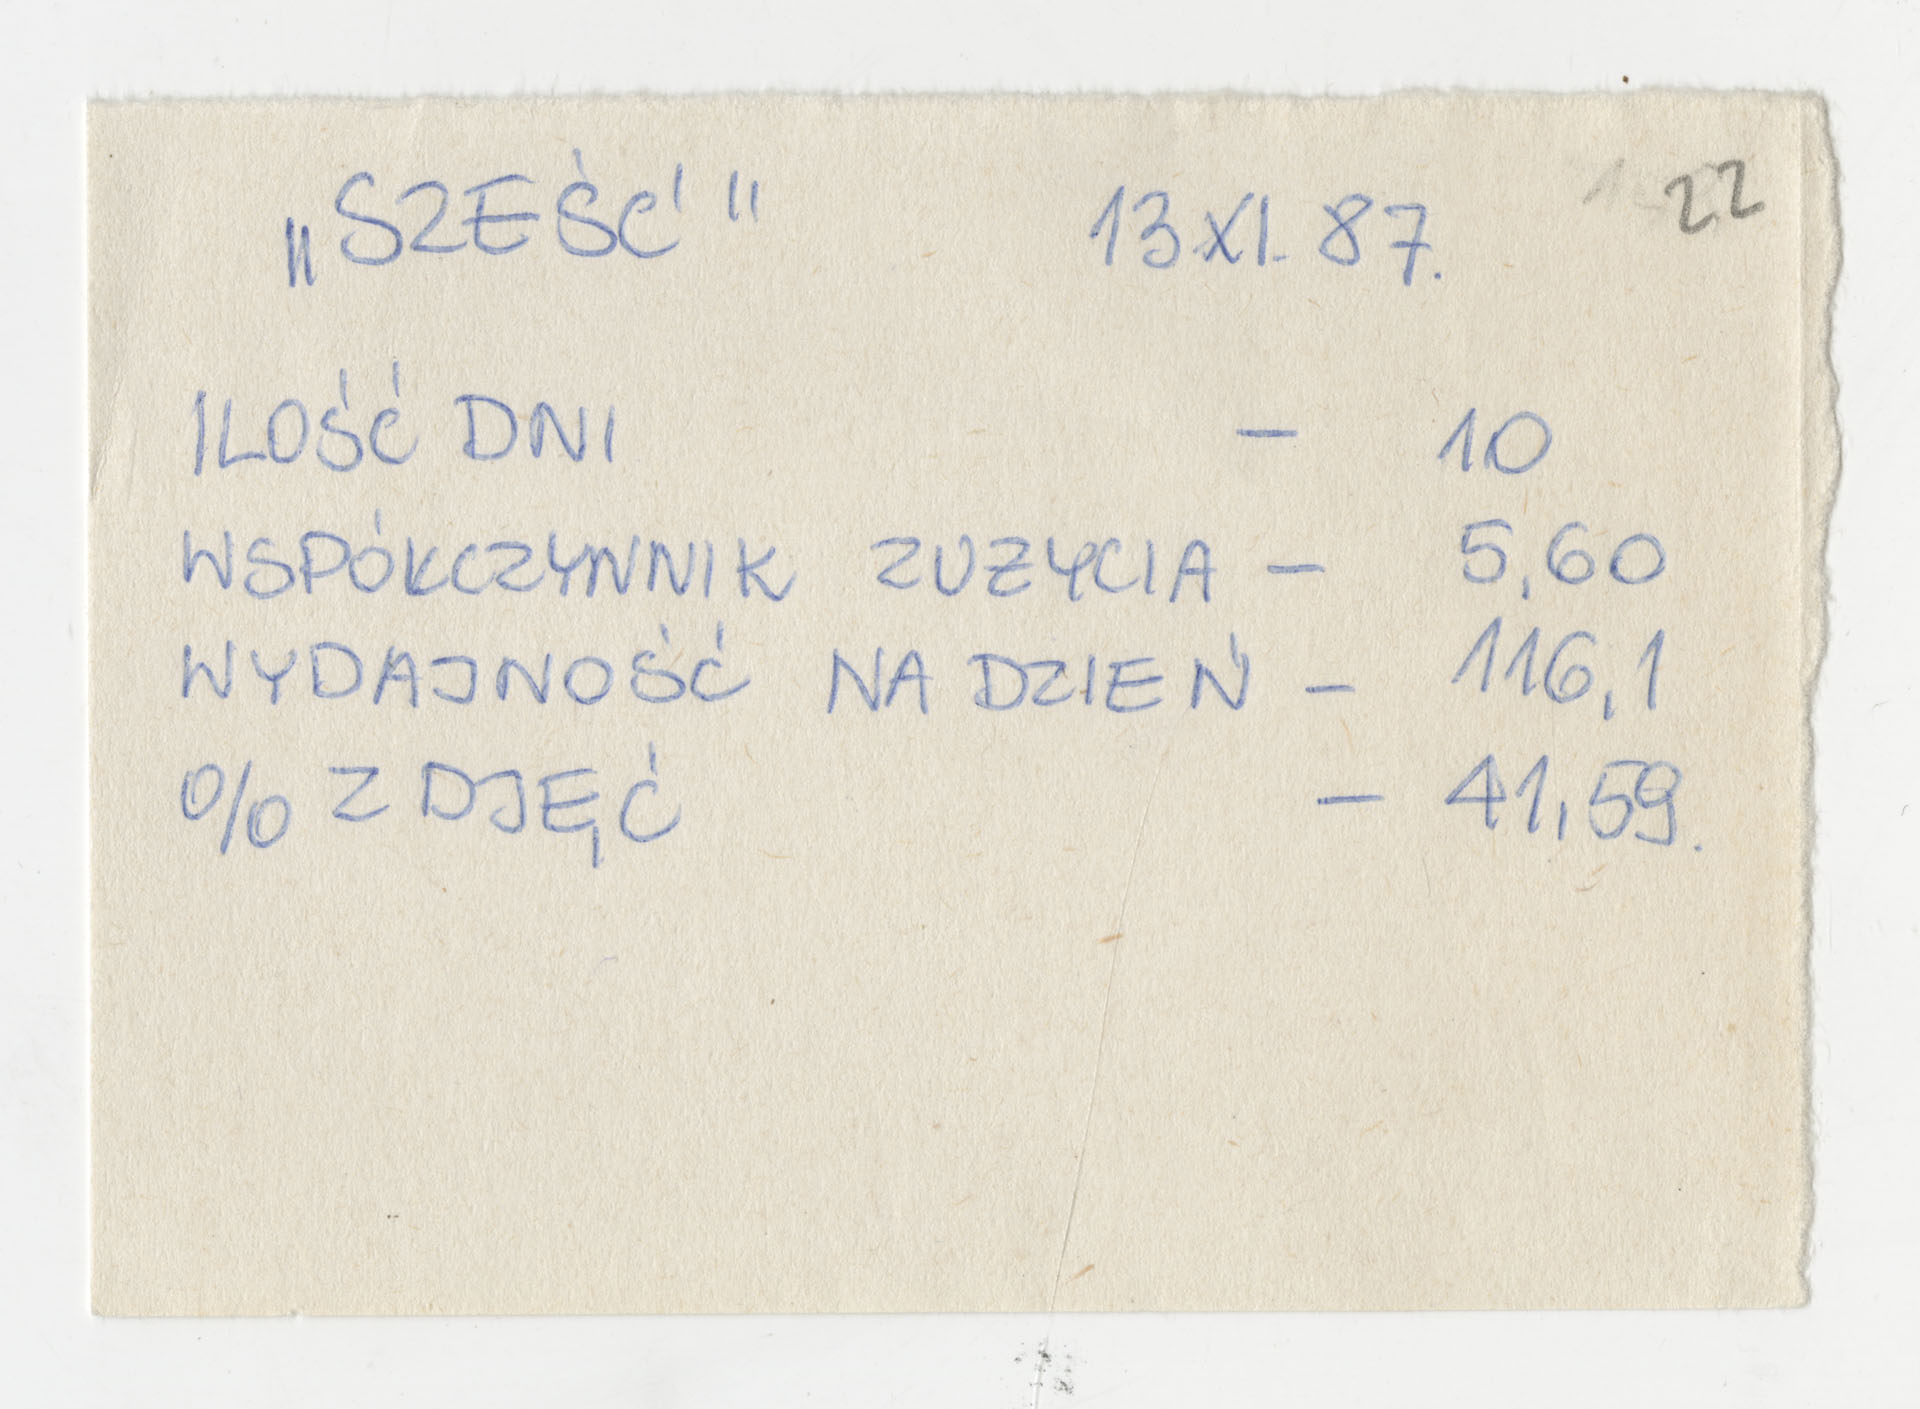 „SZEŚĆ" 13 XI. 87. 22
ILOŚĆ DNI - 10
WSPÓŁCZYNNIK ZUZYCIA - 5,60
WYDAJNOŚĆ NA DZIEŃ - 116,1
% ZDJĘĆ - 41,59.